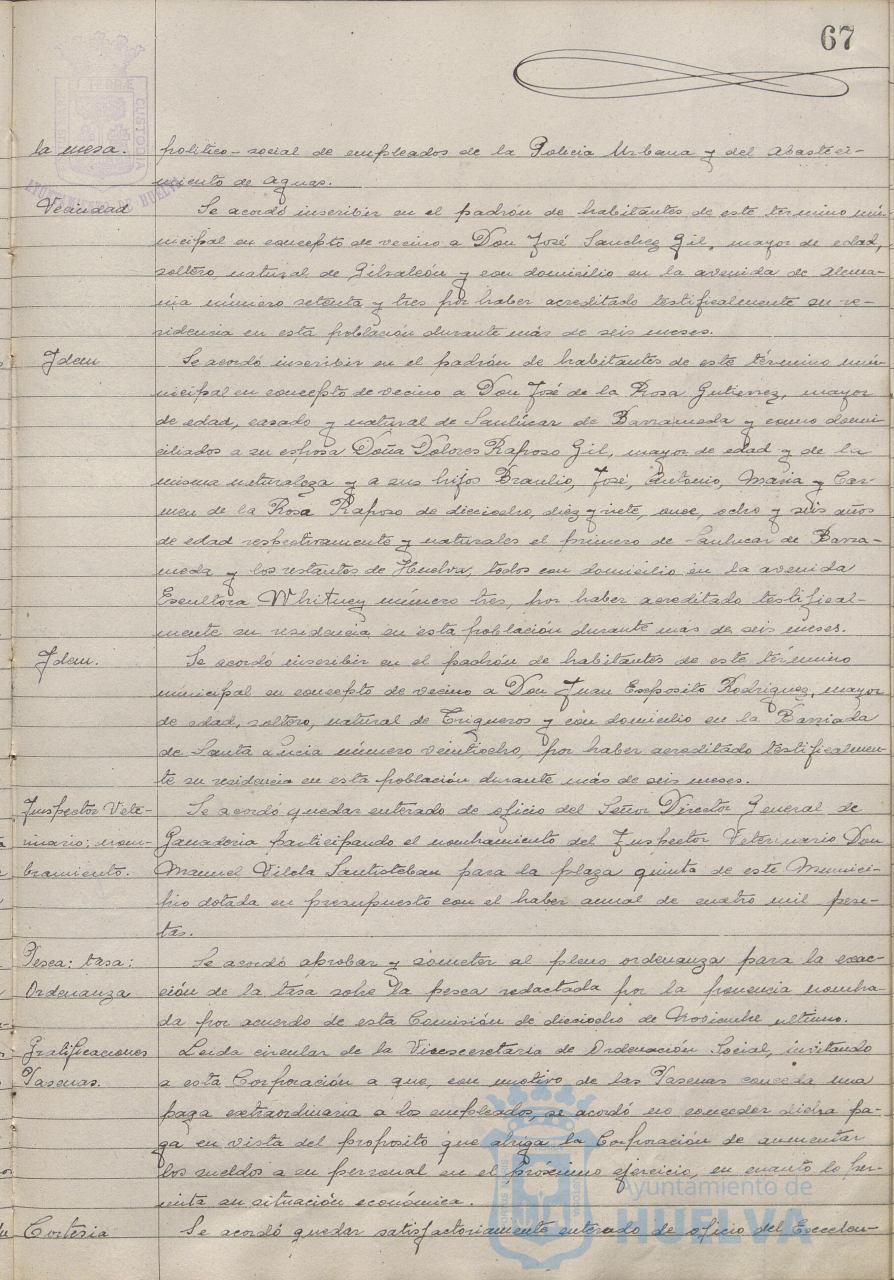 67
la mesa. politico-social de empleados de la Policia Urbana y del abasteci-
miento de aguas.
Vecindad Se acordó inscribir en el padrón de habitantes de este término mu-
nicipal en concepto de vecino a Don José Sanchez Gil, mayor de edad,
soltero, natural de Gibraleón y con domicilio en la avenida de Alema-
nia número setenta y tres por haber acreditado testificalmente su re-
sidencia en esta población durante más de seis meses.
Idem Se acordó inscribir en el padrón de habitantes de este término mu-
nicipal en concepto de vecino a Don José de la Rosa Gutierrez, mayor
de edad, casado y natural de Sanlúcar de Barrameda y como domi-
ciliados a su esposa Doña Dolores Raposo Gil, mayor de edad y de la
misma naturaleza y a sus hijos Braulio, José, Antonio, Maria y Car-
men de la Rosa Raposo de dieciocho, diez y siete, once, ocho y seis años
de edad respectivamente y naturales el primero de Sanlucar de Barra-
meda y los restantes de Huelva, todos con domicilio en la avenida
Escultora Whitney número tres, por haber acreditado testifical-
mente su residencia en esta población durante más de seis meses.
Idem. Se acordó inscribir en el padrón de habitantes de este término
municipal en concepto de vecino a Don Juan Exposito Rodriguez, mayor
de edad, soltero, natural de Trigueros y con domicilio en la Barriada
de Santa Lucia número veintiocho, por haber acreditado testificalmen-
te su residencia en esta población durante más de seis meses.
Inspector Vete- Se acordó quedar enterado de oficio del Señor Director General de
rinario: nom- Ganaderia participando el nombramiento del Inspector Veterinario Don
bramiento. Manuel Vilela Santisteban para la plaza quinta de este Munici-
pio dotada en presupuesto con el haber anual de cuatro mil pese-
tas.
Pesca: tasa: Se acordó aprobar y someter al pleno ordenanza para la exac-
Ordenanza ción de la tasa sobre la pesca redactada por la ponencia nombra-
da por acuerdo de esta Comisión de dieciocho de Noviembre último.
Gratificaciones Leida circular de la Vicesecretaria de Ordenación Social, invitando
Pascuas. a esta Corporación a que, con motivo de las Pascuas conceda una
paga extraordinaria a los empleados, se acordó no conceder dicha pa-
ga en vista del proposito que abriga la Corporación de aumentar
los sueldos a su personal en el próximo ejercicio, en cuanto lo per-
mita su situación económica.
Cortesia Se acordó quedar satisfactoriamente enterado de oficio del Excelen-
AYUNTAMIENTO DE HUELVA
CUSTODIA
Ayuntamiento de
HUELVA